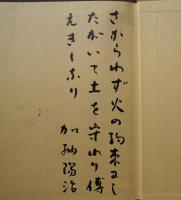 さからわず火の約束まし
たがいて土を守れり傅
えきし名り
加納陽治